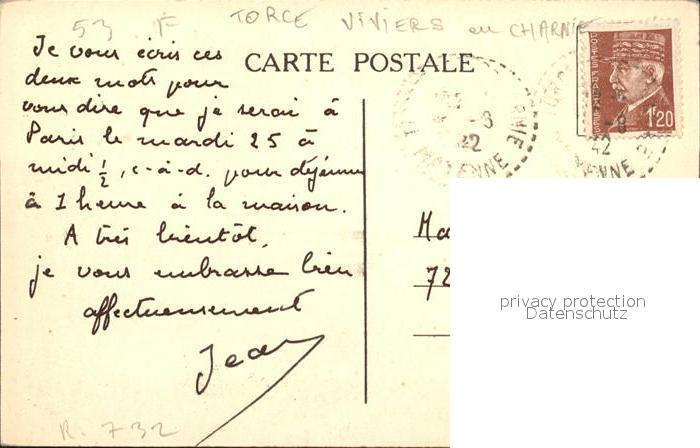 53 F TORCE VIVIERS en CHARNIE
CARTE POSTALE
Je vous écris ces
deux mots pour
vous dire que je serai à
Paris le mardi 25 à
midi ½, c-à-d. pour déjeuner
à 1 heure à la maison.
A très bientôt,
je vous embrasse bien
affectueusement
Jean
R. 732
-8
42
MAYENNE
POSTES FRANÇAISES
1F20
-8
42
Ma
72
privacy protection
Datenschutz